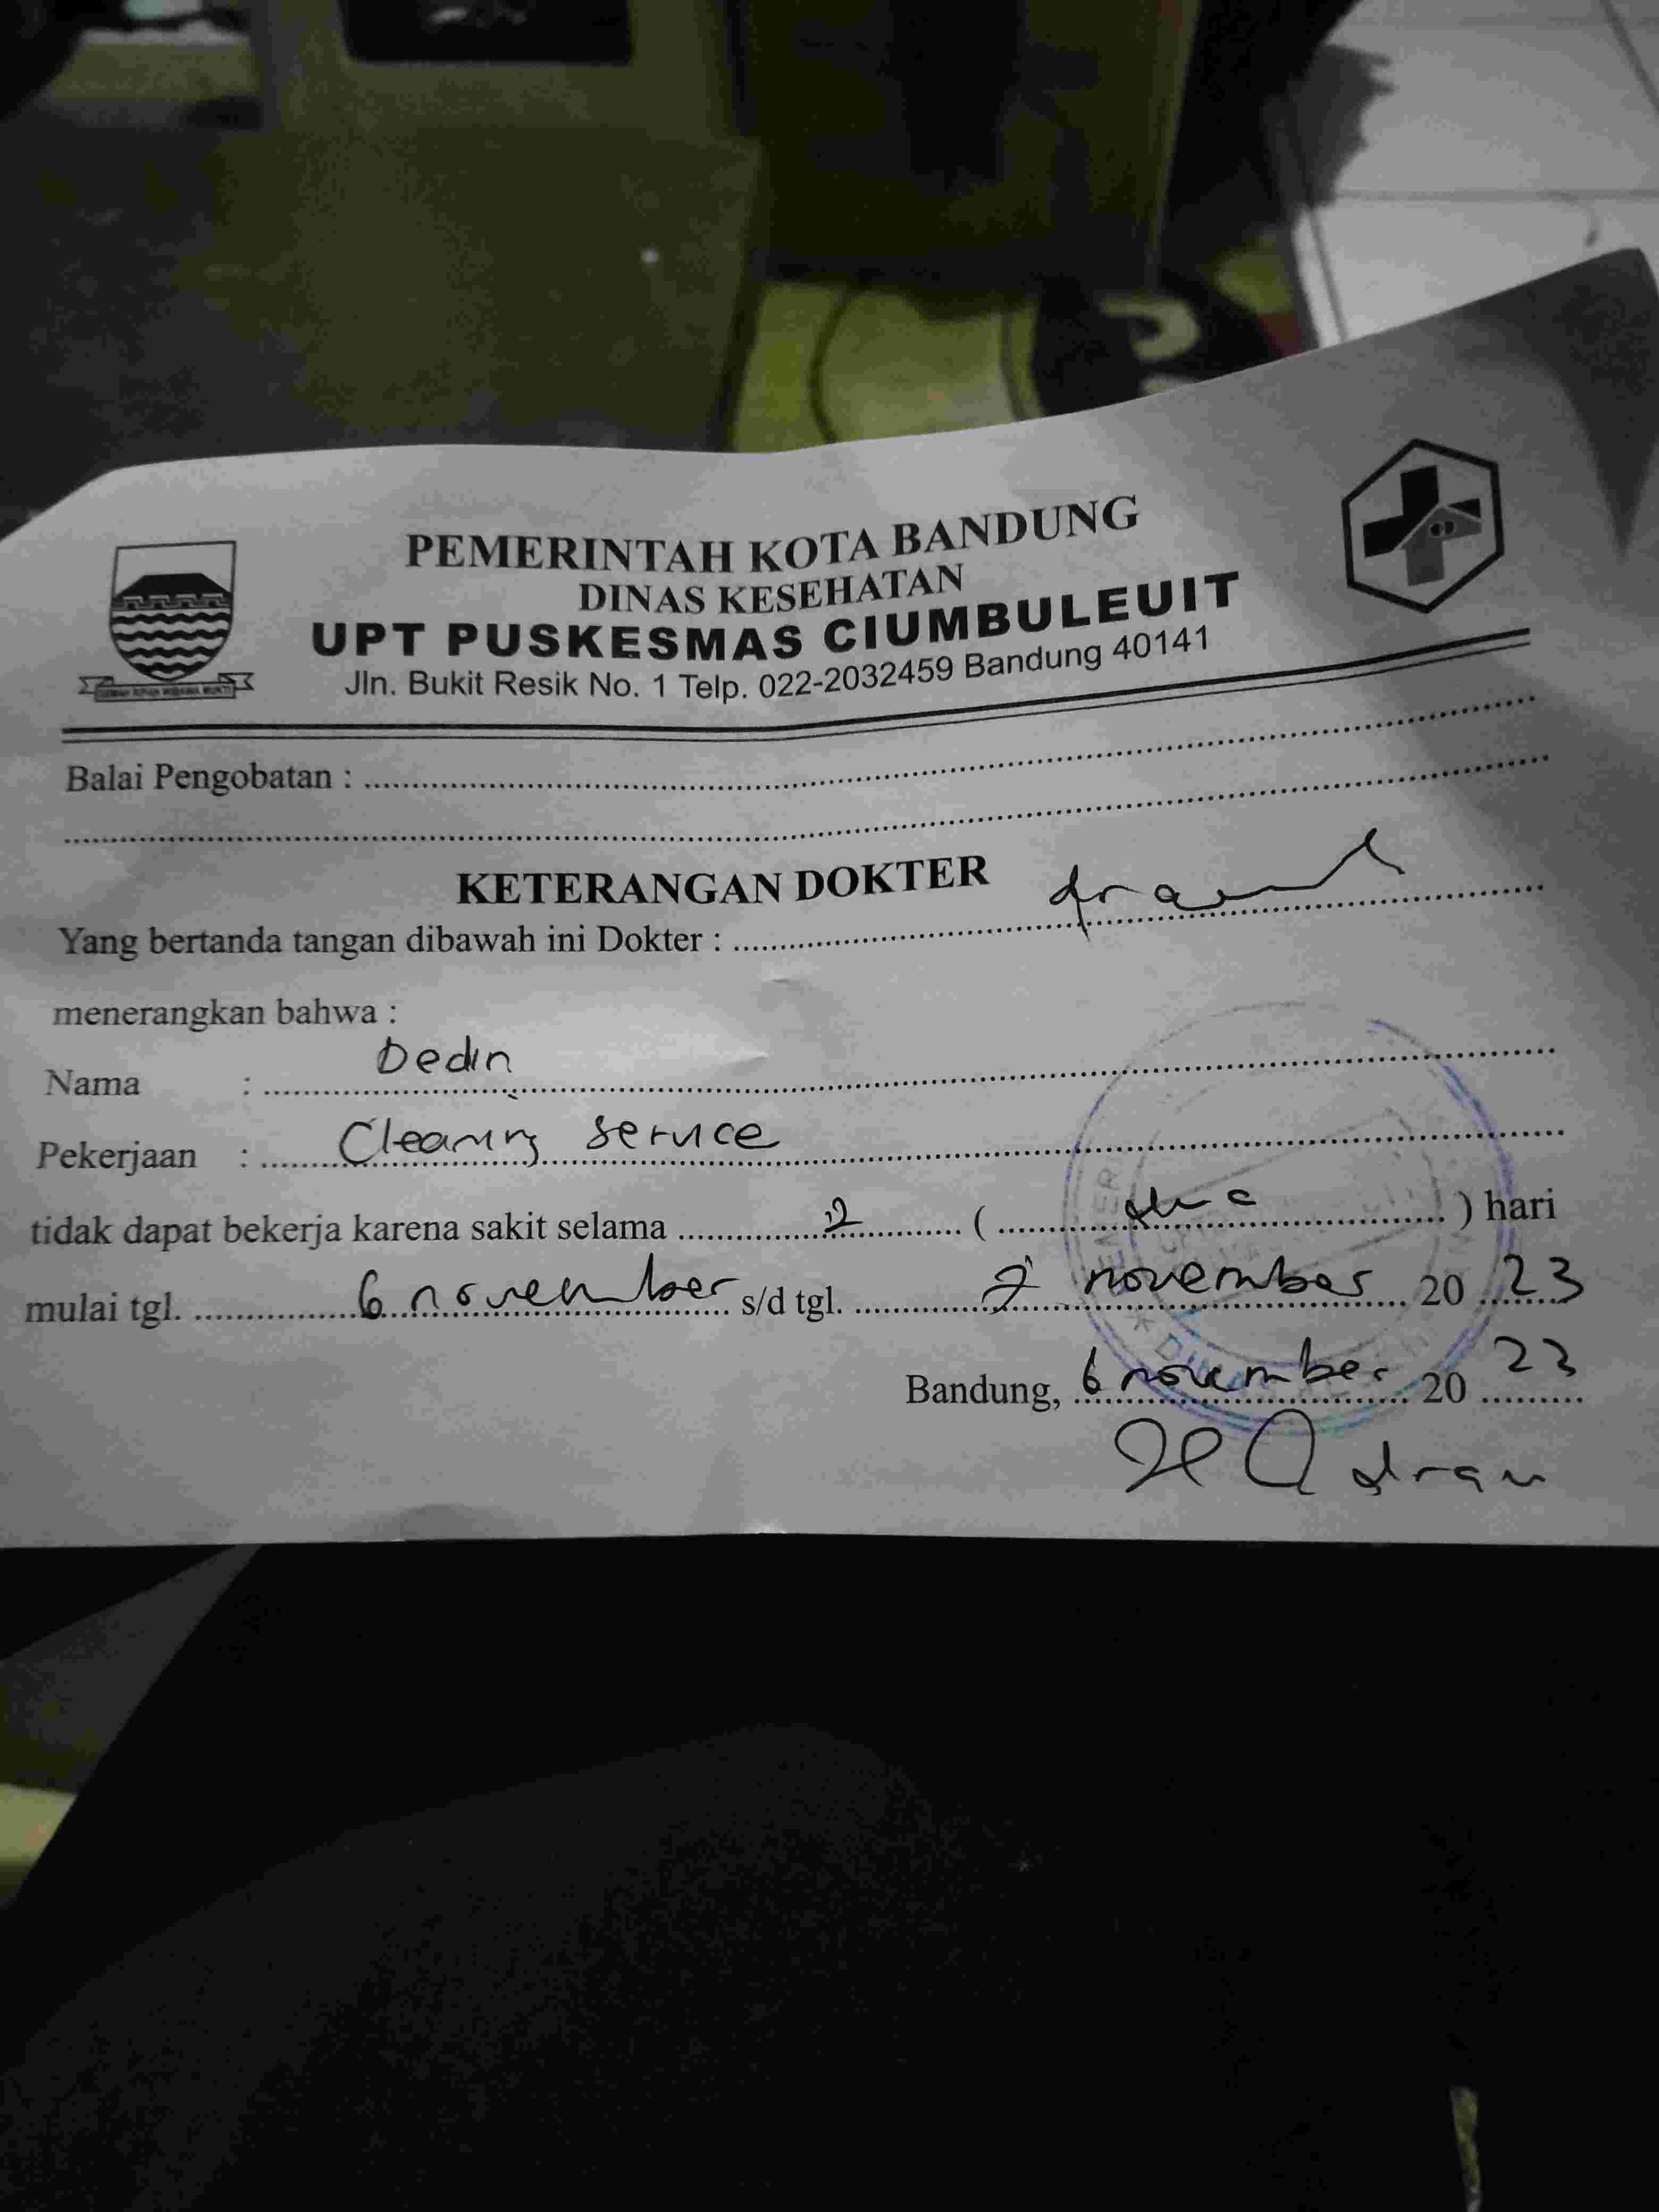 PEMERINTAH KOTA BANDUNG
DINAS KESEHATAN
UPT PUSKESMAS CIUMBULEUIT
Jln. Bukit Resik No. 1 Telp. 022-2032459 Bandung 40141
Balai Pengobatan :
KETERANGAN DOKTER
Yang bertanda tangan dibawah ini Dokter :
menerangkan bahwa :
Nama : Dedin
Pekerjaan : Cleaning service
tidak dapat bekerja karena sakit selama 2 ( dua ) hari
mulai tgl. 6 november s/d tgl. november 20 23
Bandung, 6 november 20 23